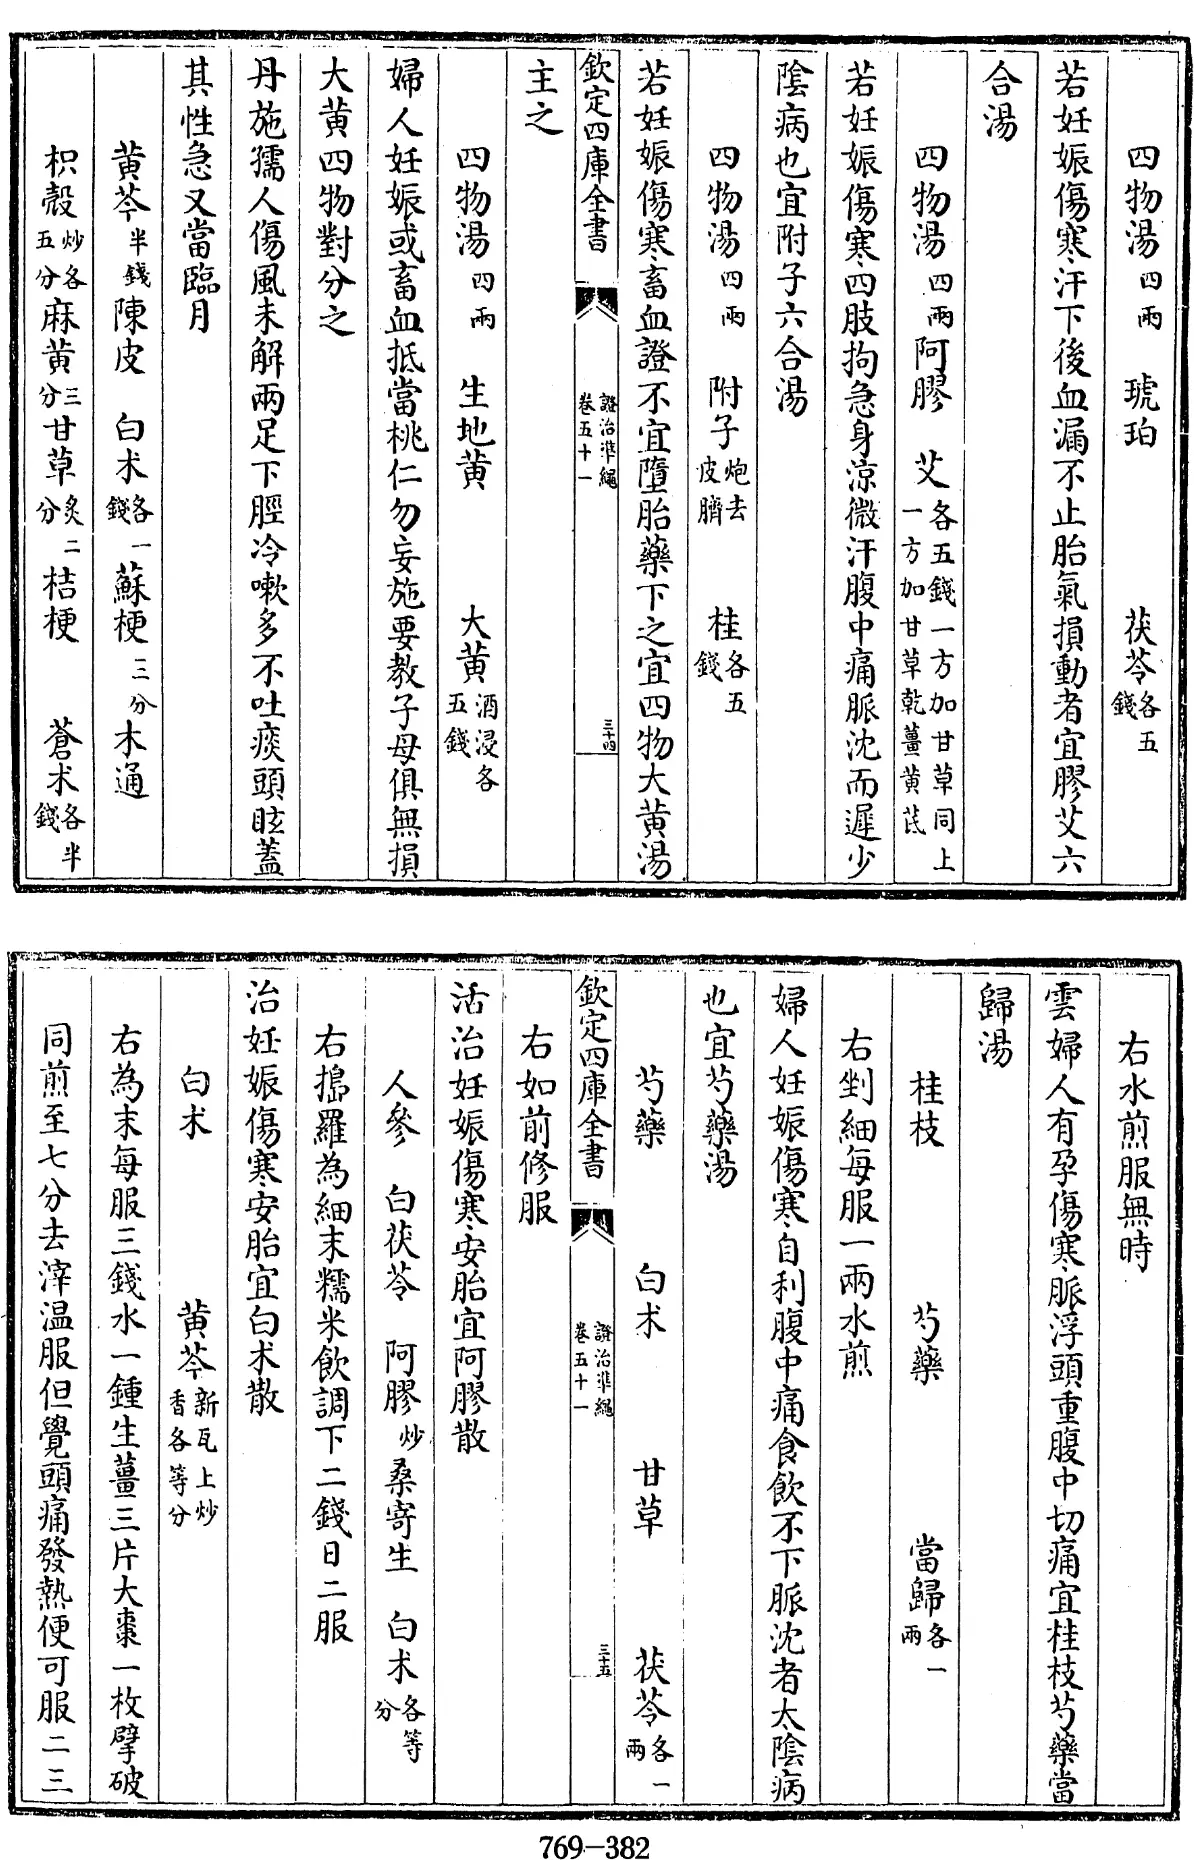 四物湯四兩　琥珀　茯苓各五錢
若妊娠傷寒汗下後血漏不止胎氣損動者宜膠艾六
合湯
四物湯四兩　阿膠　艾各五錢一方加甘草同上一方加甘草乾薑黄芪
若妊娠傷寒四肢拘急身涼微汗腹中痛脈沈而遲少
陰病也宜附子六合湯
四物湯四兩　附子炮去皮臍　桂各五錢
若妊娠傷寒畜血證不宜墮胎藥下之宜四物大黄湯
欽定四庫全書　證治準繩卷五十一　三十四
主之
四物湯四兩　生地黄　大黄酒浸各五錢
婦人妊娠或畜血抵當桃仁勿妄施要教子母俱無損
大黄四物對分之
丹施孺人傷風未解兩足下脛冷嗽多不吐痰頭眩蓋
其性急又當臨月
黄芩半錢　陳皮　白术各一錢　蘇梗三分　木通
枳殼炒各五分　麻黄三分　甘草炙二分　桔梗　蒼术各半錢
右水煎服無時
雲婦人有孕傷寒脈浮頭重腹中切痛宜桂枝芍藥當
歸湯
桂枝　芍藥　當歸各一兩
右剉細每服一兩水煎
婦人妊娠傷寒自利腹中痛食飲不下脈沈者太陰病
也宜芍藥湯
芍藥　白术　甘草　茯苓各一兩
欽定四庫全書　證治準繩卷五十一　三十五
右如前修服
活治妊娠傷寒安胎宜阿膠散
人參　白茯苓　阿膠炒　桑寄生　白术各等分
右搗羅為細末糯米飲調下二錢日二服
治妊娠傷寒安胎宜白术散
白术　黄芩新瓦上炒香各等分
右為末每服三錢水一鍾生薑三片大棗一枚擘破
同煎至七分去滓温服但覺頭痛發熱便可服二三
769—382